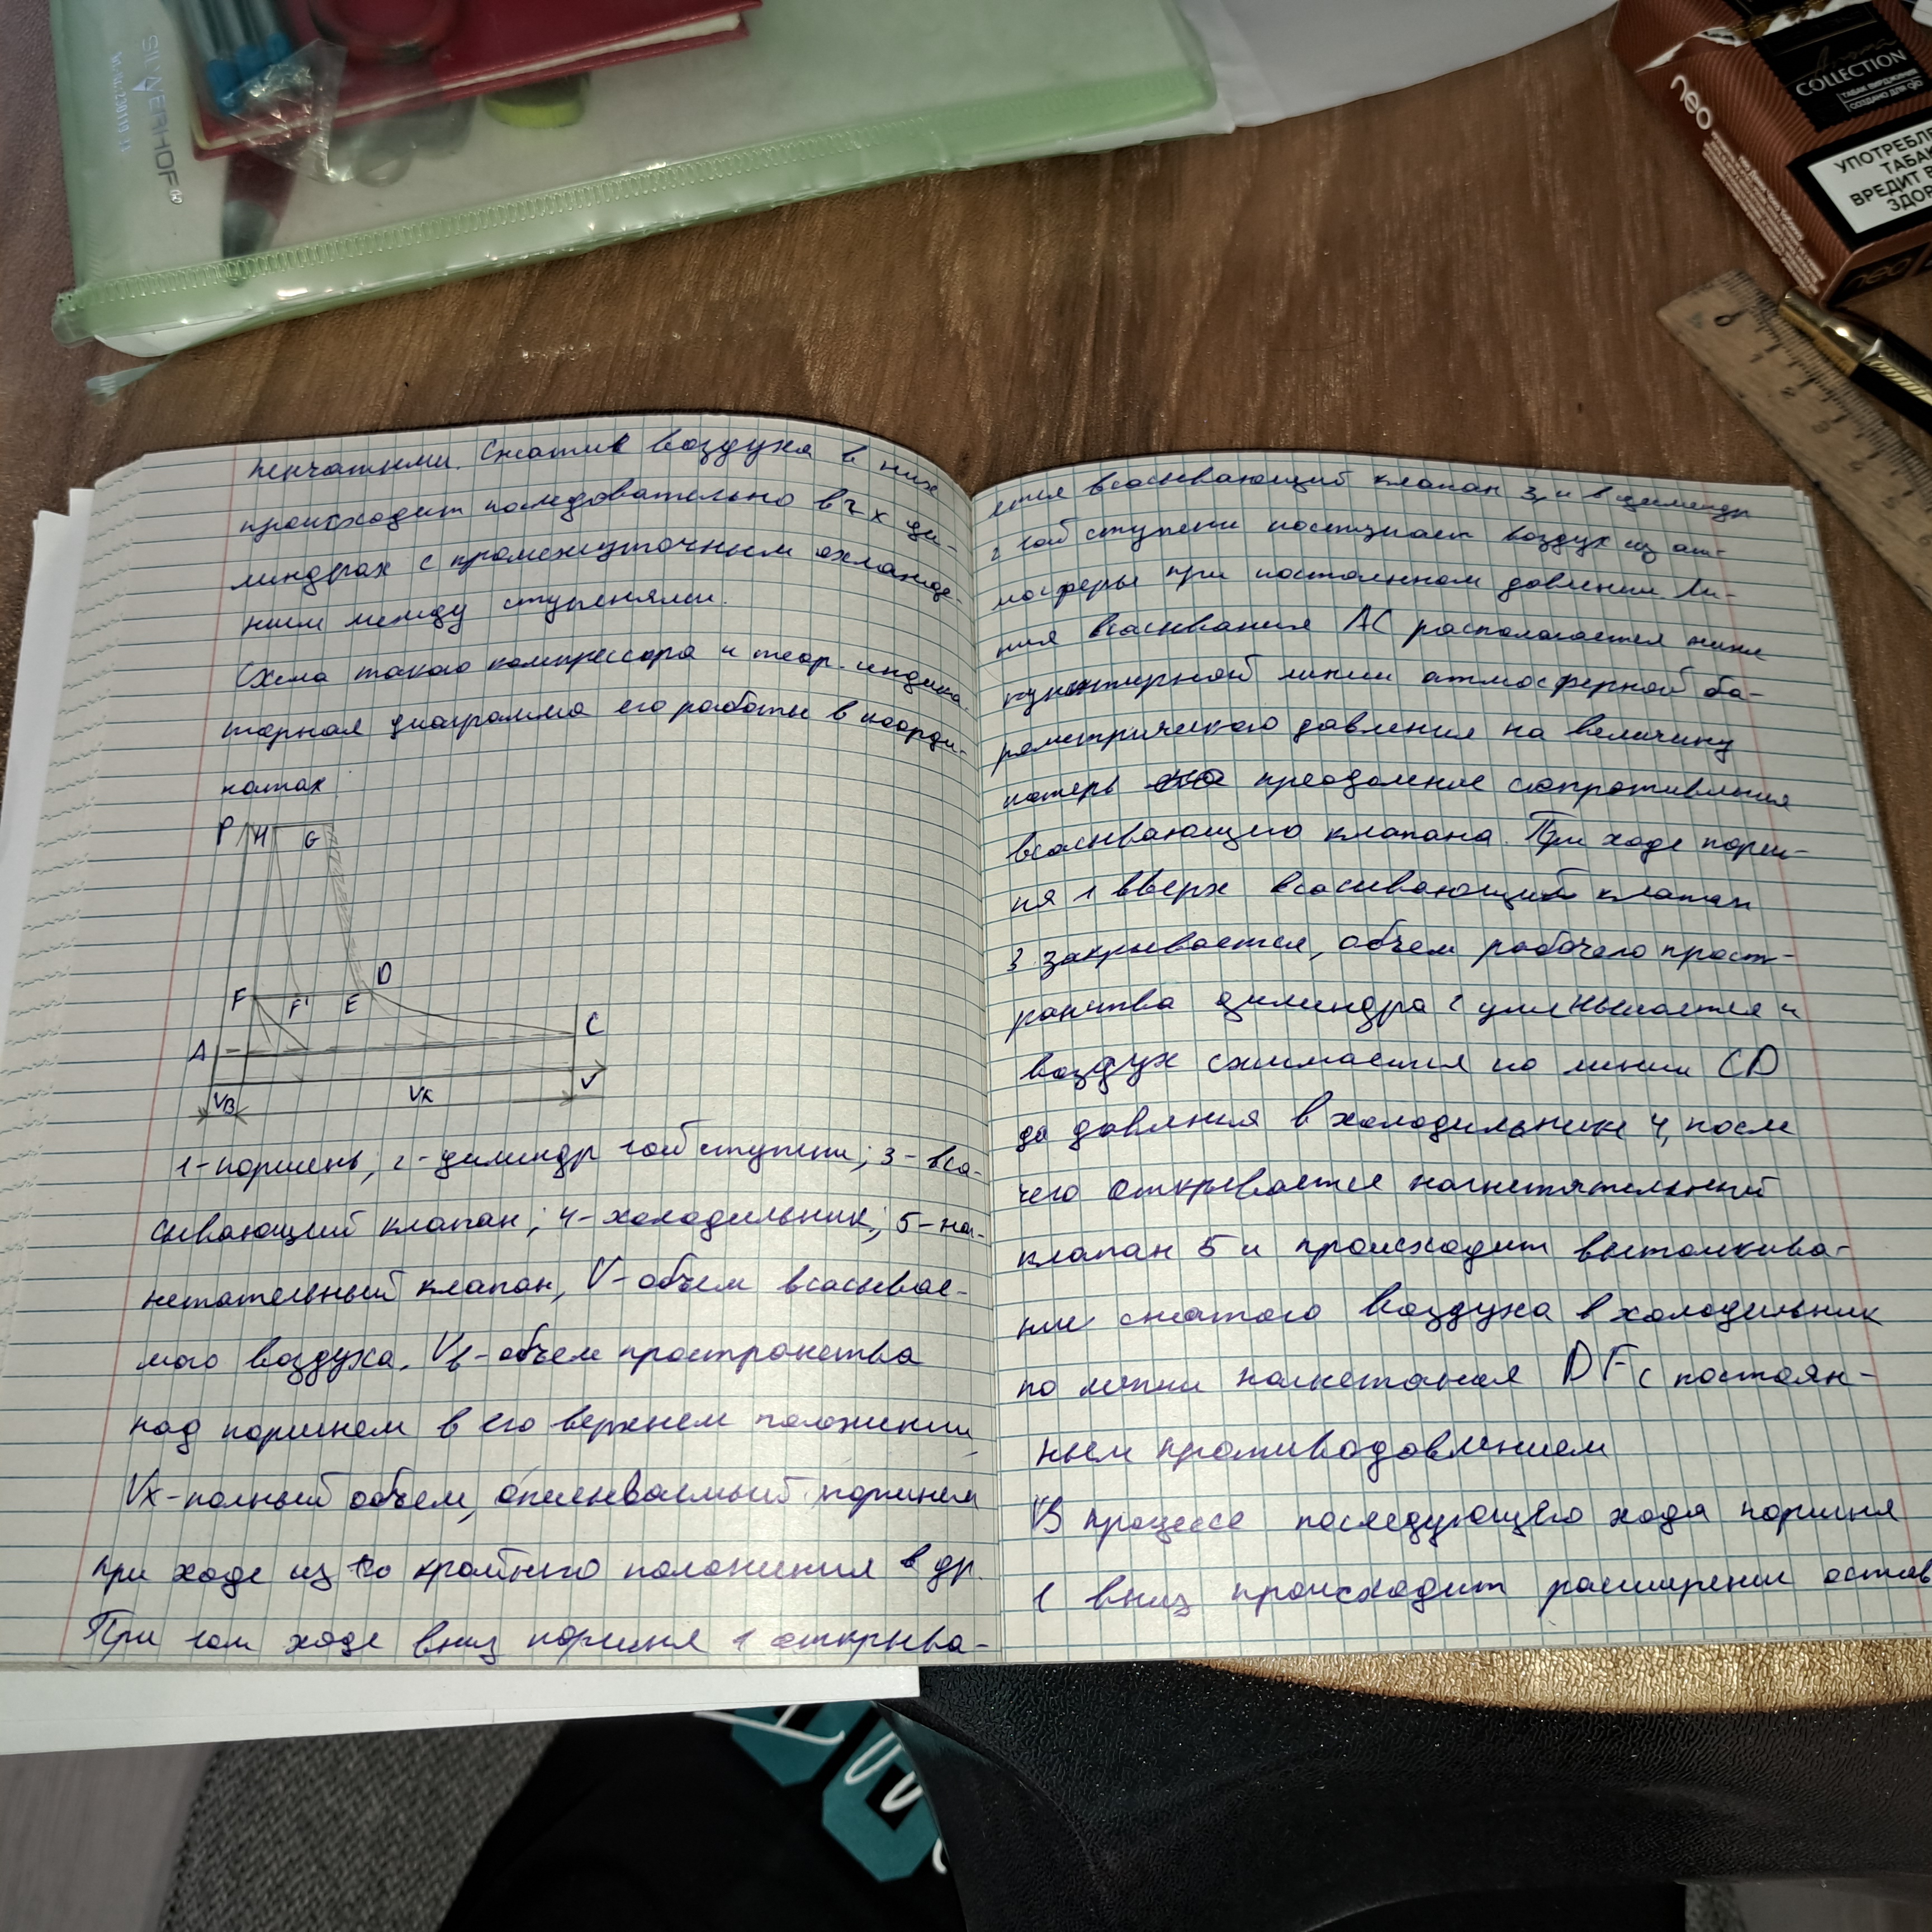 SILWERHOF®
COLLECTION
ТАБАК
СОЗДАНО ДЛЯ glo
neo
УПОТРЕБЛ
ТАБАК
ВРЕДИТ В
ЗДОР
neo
0 1 2 3
пенчатыми. Сжатие воздуха в них
происходит последовательно в 2х ци-
линдрах с промежуточным охлажде-
нием между ступенями.
Схема такого компрессора и теор. индика-
торная диаграмма его работы в коорди-
натах
P H G
F F' E D
A C
VB Vx V
1-поршень; 2-цилиндр 1ой ступени; 3-вса-
сывающий клапан; 4-холодильник; 5-наг-
нетательный клапан, V-объем всасывае-
мого воздуха, Vв-объем пространства
над поршнем в его верхнем положении,
Vx-полный объем, описываемый поршнем
при ходе из 1го крайнего положения в др.
При 1ом ходе вниз поршня 1 открыва-
ется всасывающий клапан 3, и в цилиндр
2 1ой ступени поступает воздух из ат-
мосферы при постоянном давлении. Ли-
ния всасывания AC располагается ниже
пунктирной линии атмосферной ба-
рометрического давления на величину
потерь преодоление сопротивления
всасывающего клапана. При ходе порш-
ня 1 вверх всасывающий клапан
3 закрывается, объем рабочего прост-
ранства цилиндра 2 уменьшается и
воздух сжимается по линии CD
до давления в холодильнике 4, после
чего открывается нагнетательный
клапан 5 и происходит выталкива-
ние сжатого воздуха в холодильник
по линии нагнетания DF с постоян-
ным противодавлением
В процессе последующего хода поршня
1 вниз происходит расширение остав